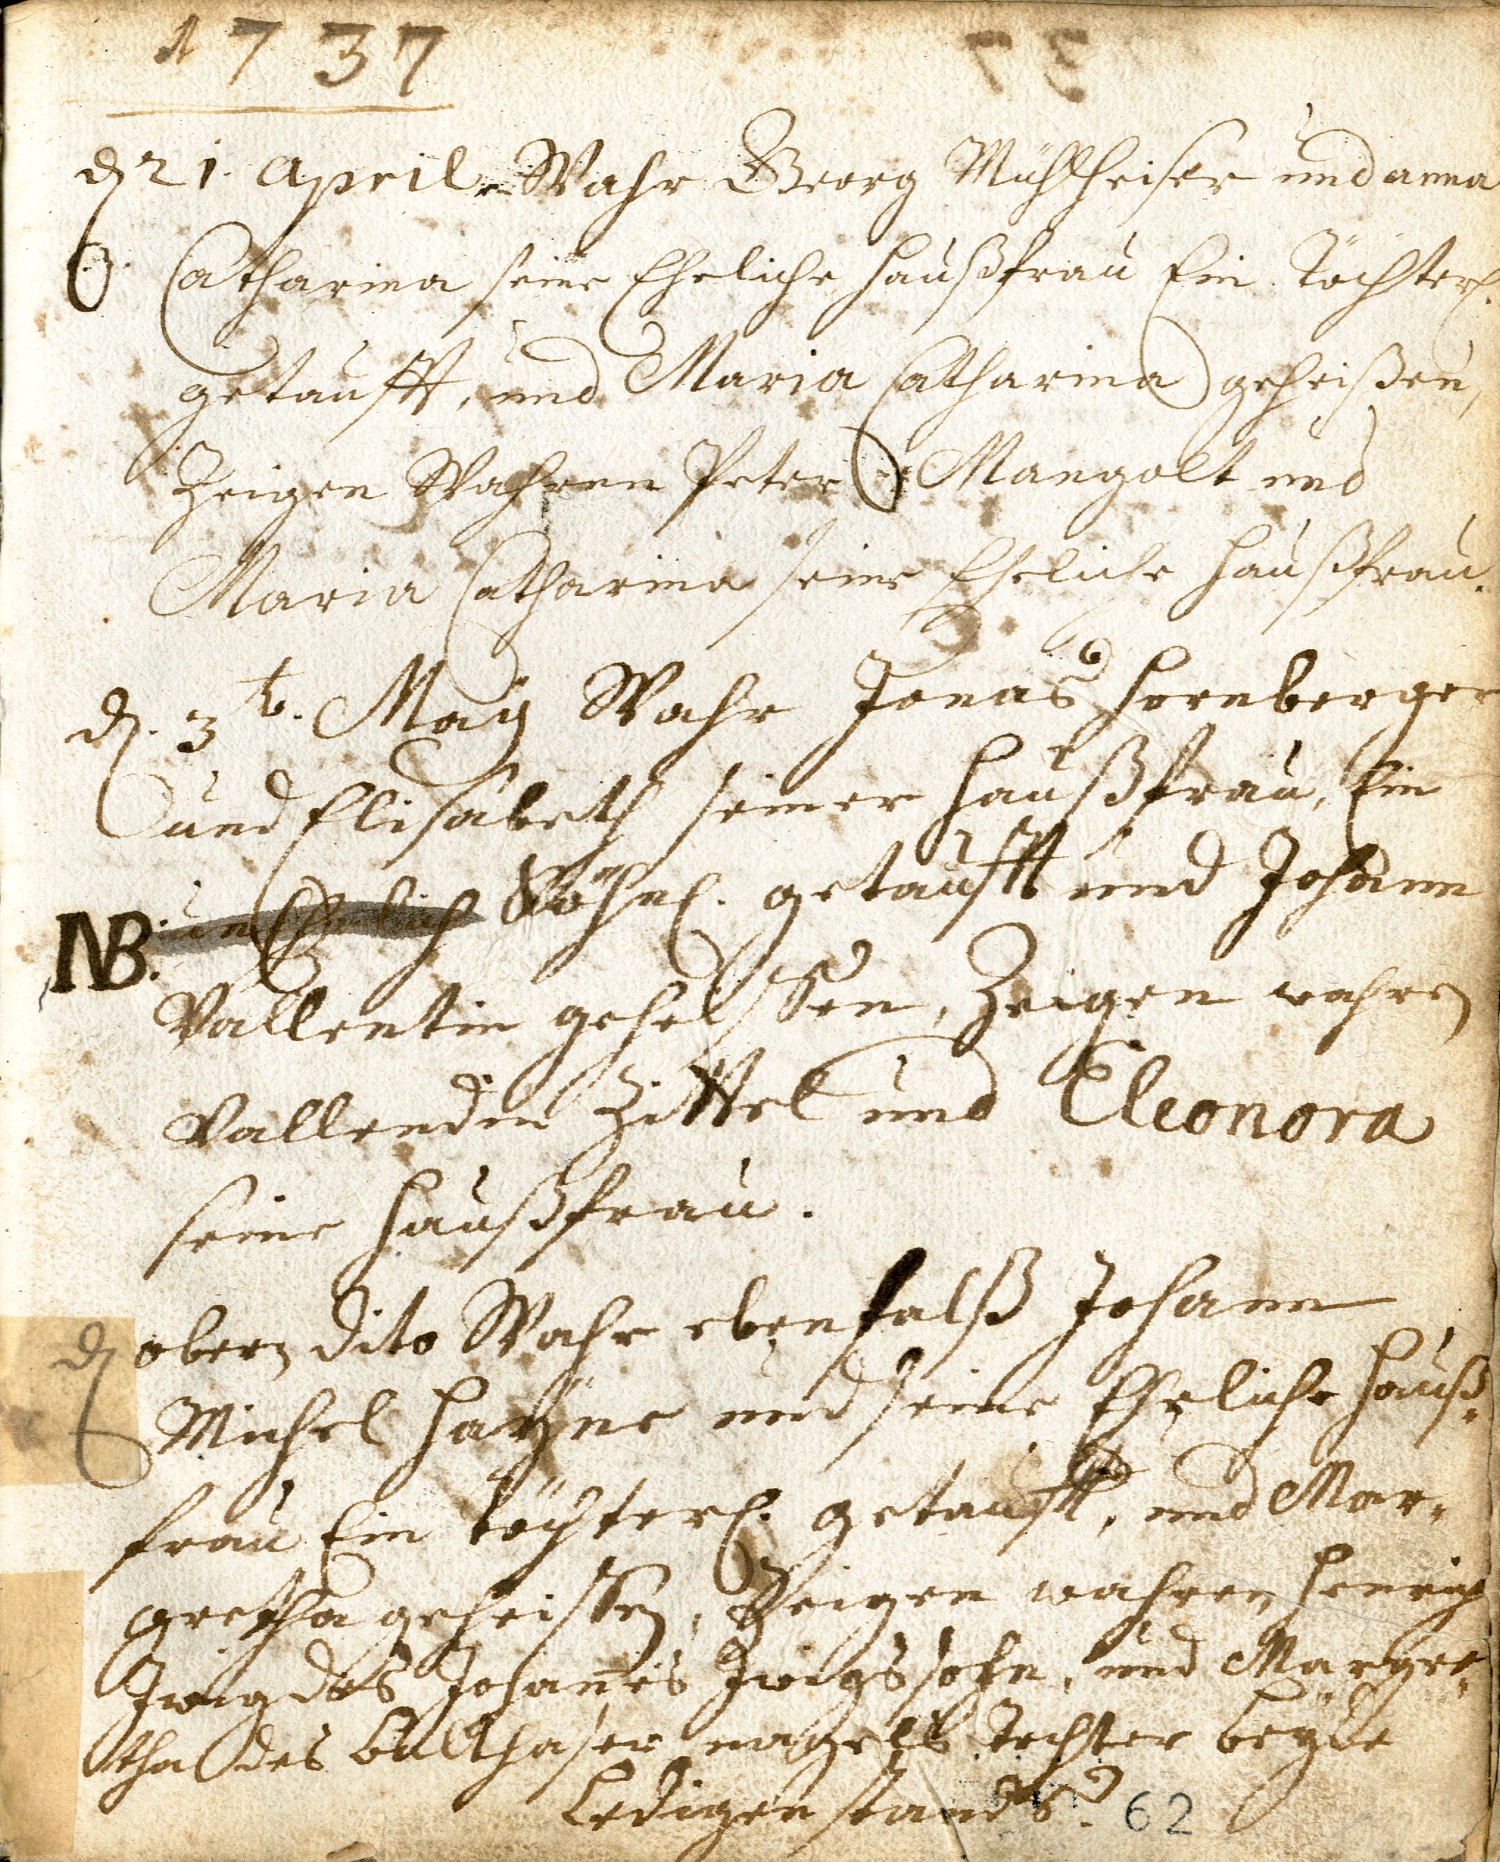 1737
d 21. April. Wahr Georg Mühlheiser und anna
Catharina seine Eheliche Haußfrau Ein Töchterl.
getaufft, und Maria Catharina geheißen,
Zeigen Wahren Peter Mangolt und
Maria Catharina seine Eheliche Haußfrau.
d. 3t. Maÿ Wahr Jonas Hornberger
und Elisabeth seiner Haußfrau, Ein
NB. Söhnl. getaufft und Johann
Vallentin geheissen, Zeigen wahren
Vallendin Zittel und Eleonora
seine Haußfrau.
d obern dito Wahr ebenfalß Johann
Michel Haÿne und seine Eheliche Hauß-
frau Ein töchterl. getaufft, und Mar-
gretha geheissen, Zeigen wahren Henrich
Zwig des Johannes Zwigs sohn, und Margre-
tha des balthaser nagels Tochter beÿde
Ledigen stands.
62